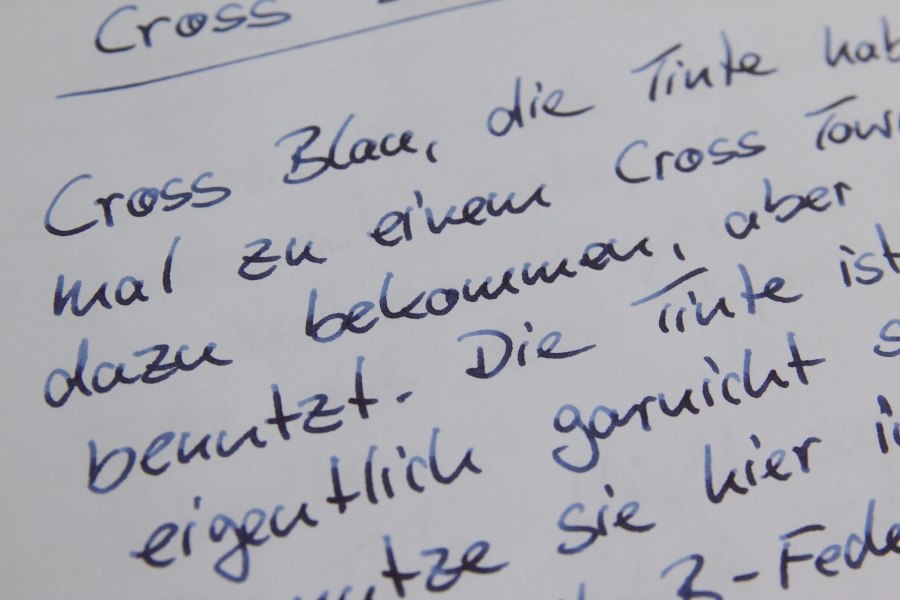 Cross
Cross Blau, die Tinte hab
mal zu einem Cross Town
dazu bekommen, aber
benutzt. Die Tinte ist
eigentlich garnicht s
nutze sie hier i
B-Fede